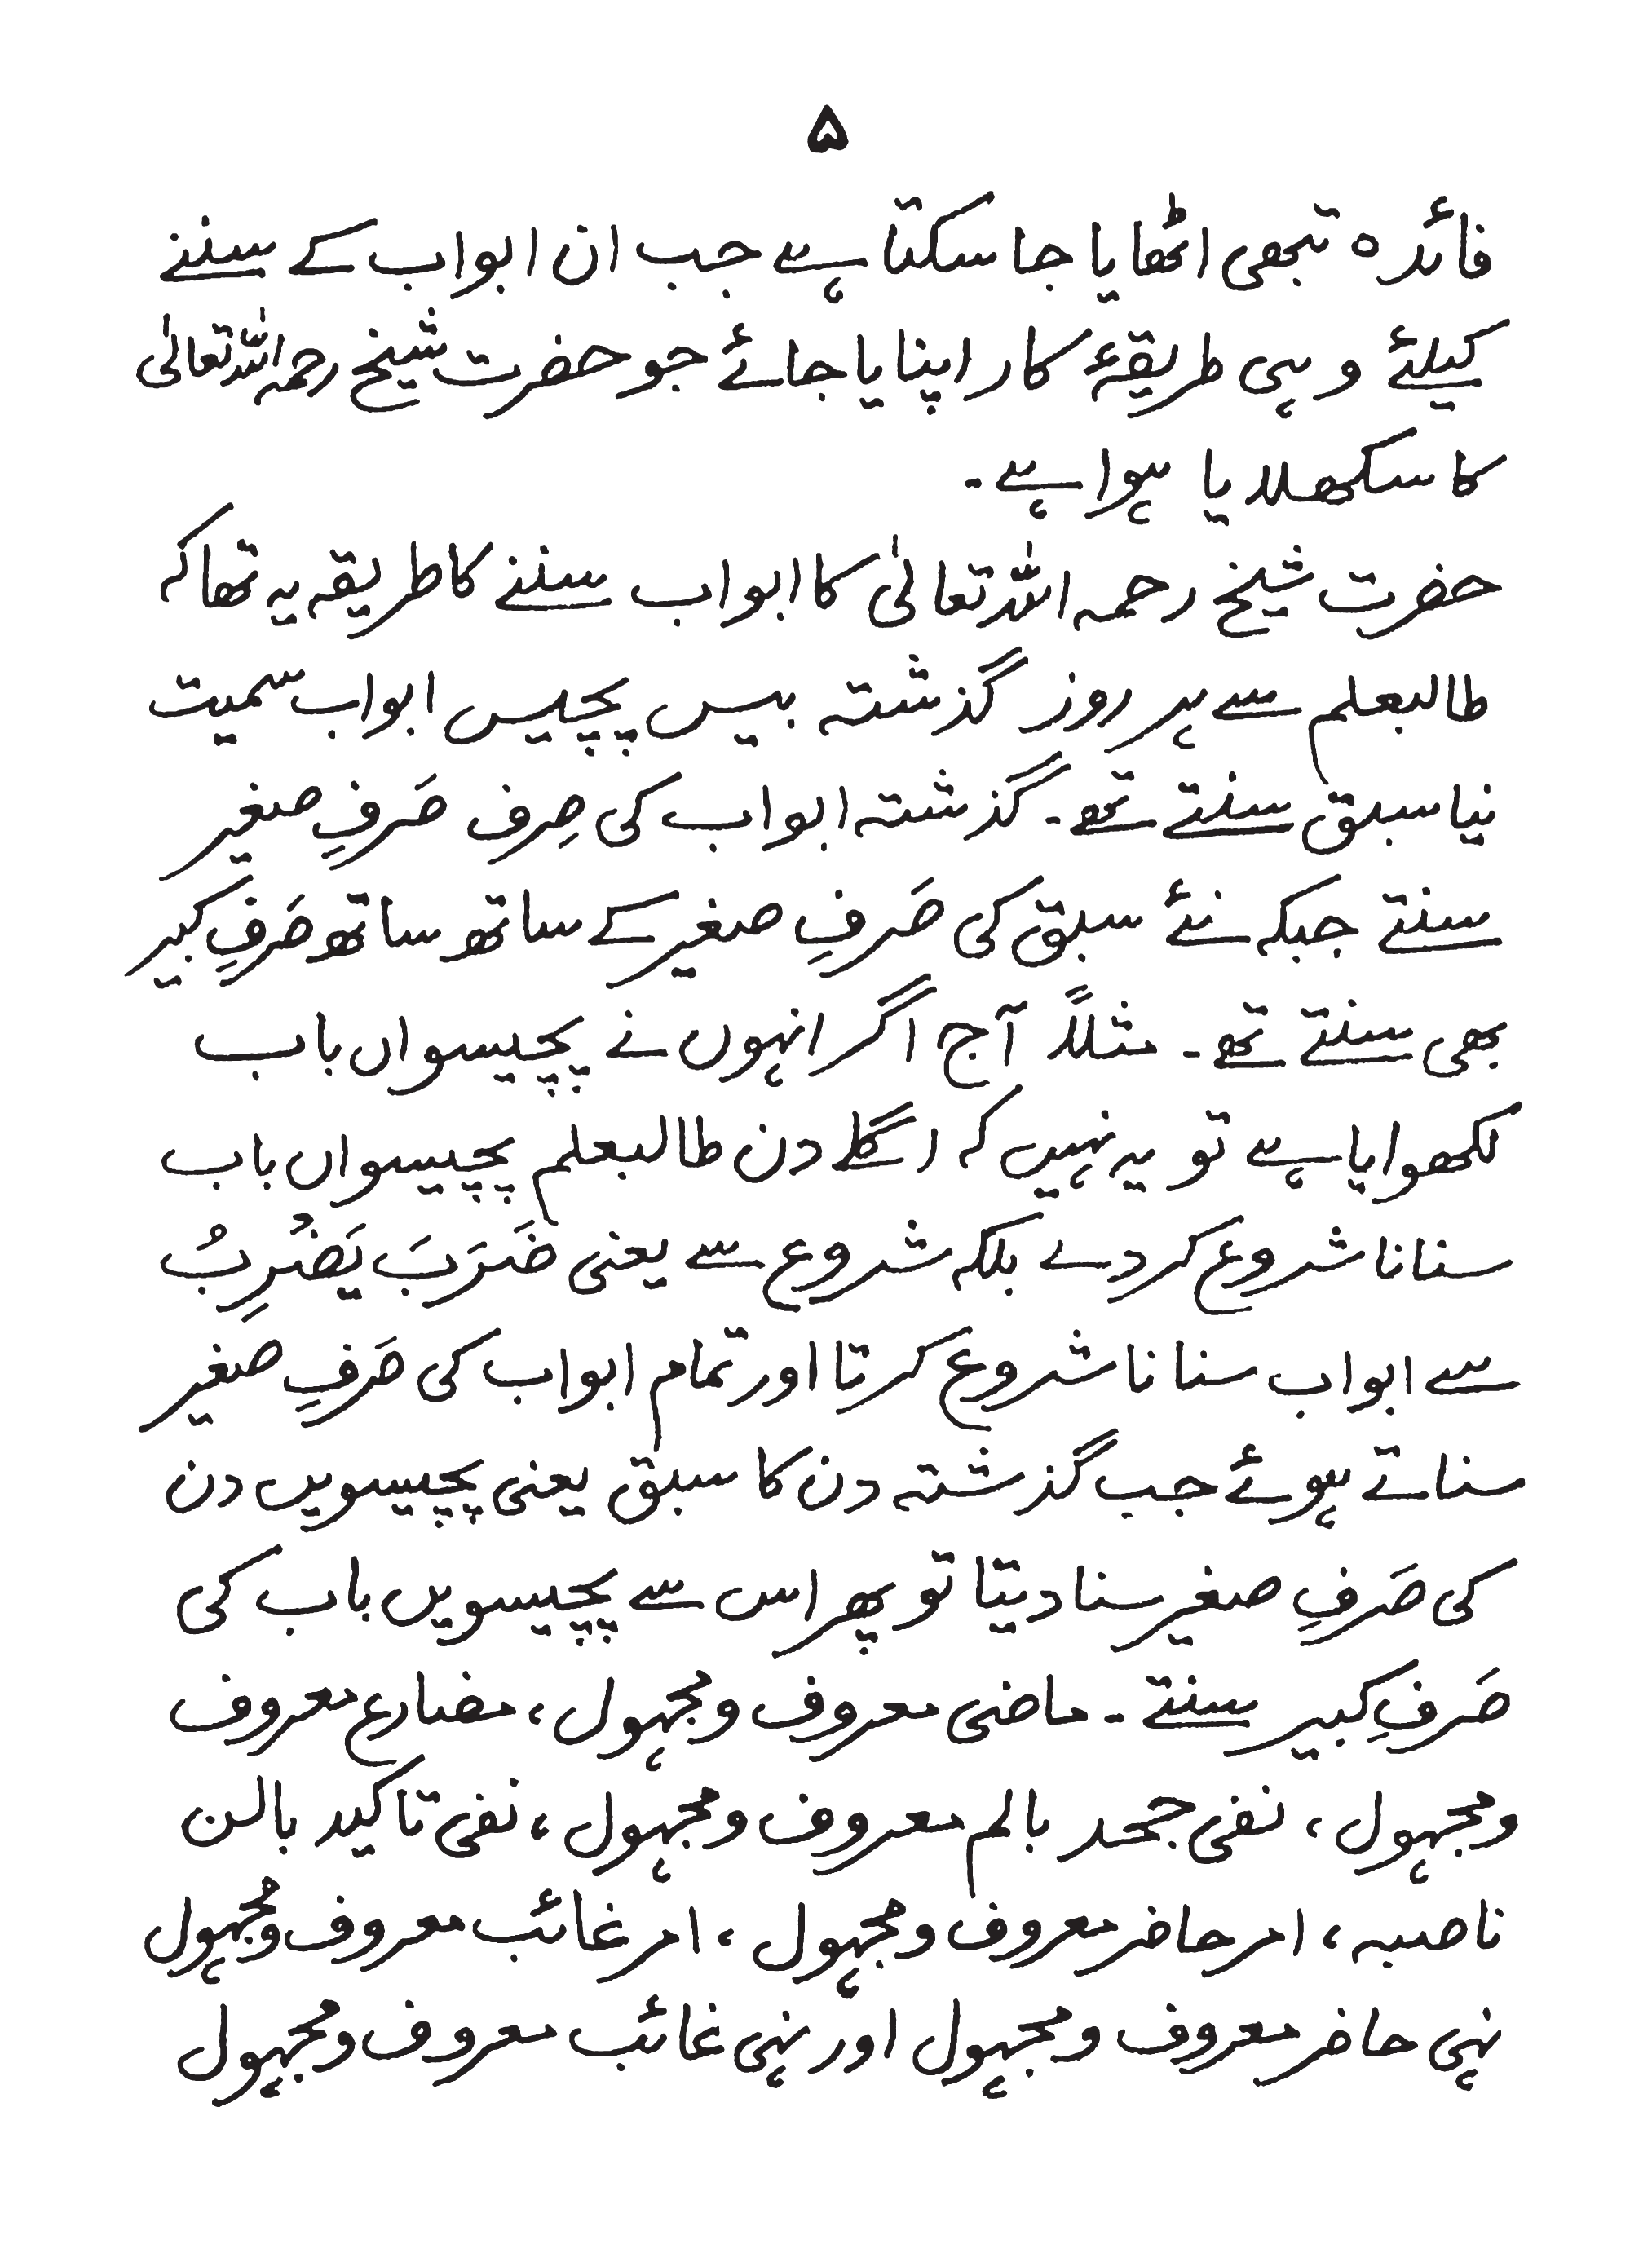 ۵
فائدہ تبھی اٹھایا جا سکتا ہے جب ان ابواب کے سننے
کیلئے وہی طریقۂ کار اپنایا جائے جو حضرت شیخ رحمہ اللہ تعالیٰ
کا سکھلایا ہوا ہے۔
حضرت شیخ رحمہ اللہ تعالیٰ کا ابواب سننے کا طریقہ یہ تھا کہ
طالبعلم سے ہر روز گذشتہ بیس پچیس ابواب سمیت
نیا سبق سنتے تھے۔ گذشتہ ابواب کی صِرف صَرفِ صغیر
سنتے جبکہ نئے سبق کی صَرفِ صغیر کے ساتھ ساتھ صَرفِ کبیر
بھی سنتے تھے۔ مثلاً آج اگر انہوں نے پچیسواں باب
لکھوایا ہے تو یہ نہیں کہ اگلے دن طالبعلم پچیسواں باب
سنانا شروع کر دے بلکہ شروع سے یعنی ضَرَبَ یَضْرِبُ
سے ابواب سنانا شروع کرتا اور تمام ابواب کی صَرفِ صغیر
سناتے ہوئے جب گذشتہ دن کا سبق یعنی پچیسویں دن
کی صَرفِ صغیر سنا دیتا تو پھر اس سے پچیسویں باب کی
صَرفِ کبیر سنتے۔ ماضی معروف و مجہول، مضارع معروف
و مجہول، نفی جحد بالم معروف و مجہول، نفی تاکید بالن
ناصبہ، امر حاضر معروف و مجہول، امر غائب معروف و مجہول
نہی حاضر معروف و مجہول اور نہی غائب معروف و مجہول